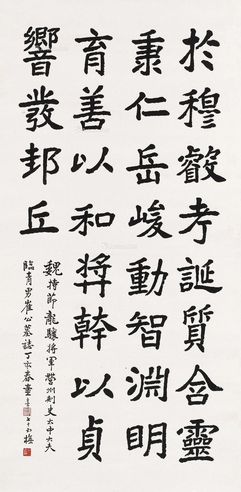 於穆叡考誕質含靈
秉仁岳峻動智淵明
育善以和奬幹以貞
響發邦丘
魏持節龍驤將軍營州刺史太中大夫
臨青男崔公墓誌丁亥春童